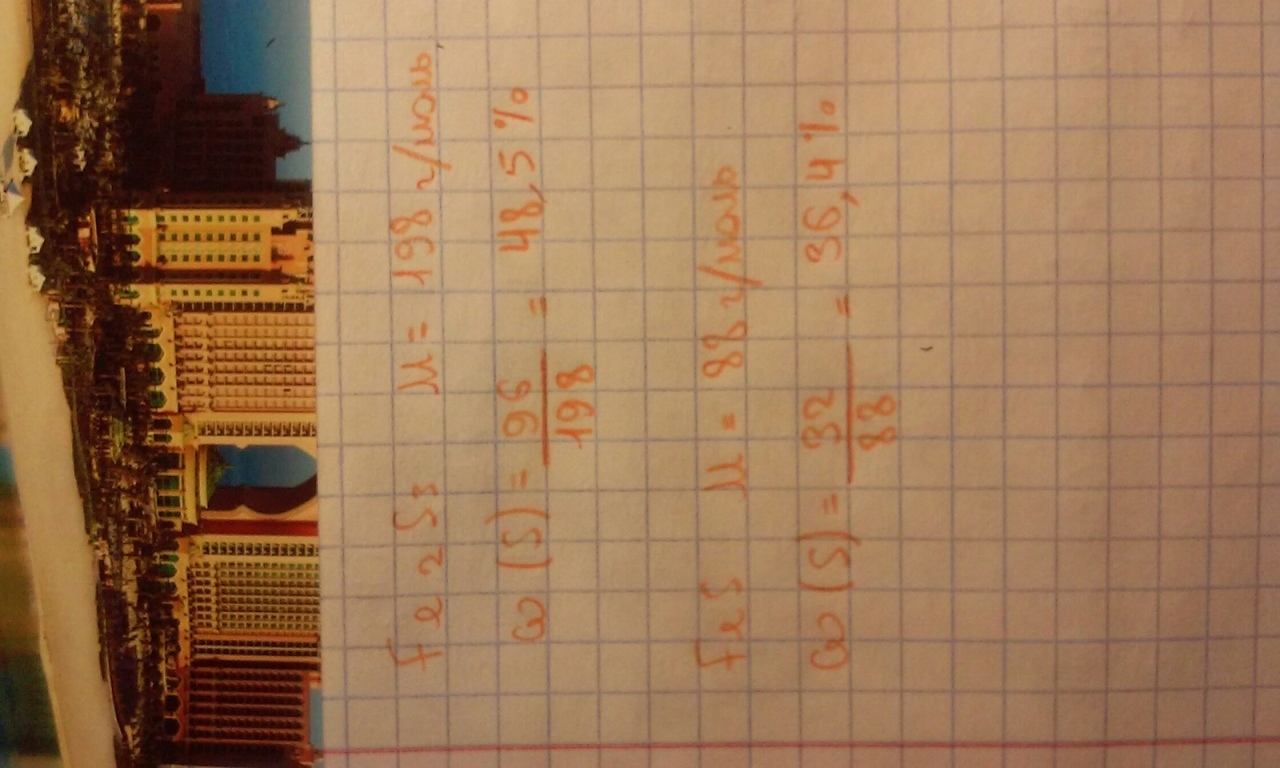 Fe2S3 M = 198 г/моль
ω (S) = 96/198 = 48,5%
FeS M = 88 г/моль
ω (S) = 32/88 = 36,4%